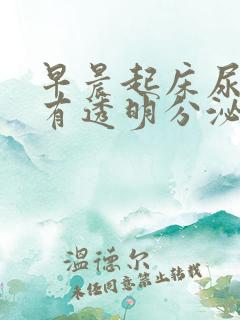 早晨起床尿
有透明分泌
温德尔
未经同意禁止转载